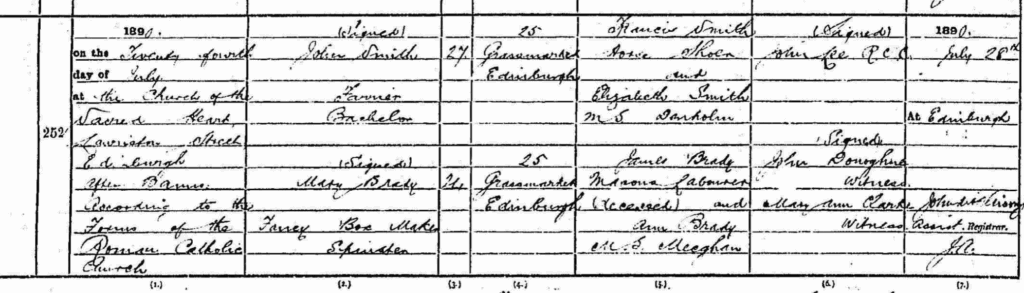 252
1890.
on the Twenty fourth
day of July
at the Church of the
Sacred Heart,
Lauriston Street
Edinburgh
After Banns
According to the
Forms of the
Roman Catholic
Church
(Signed)
John Smith
Farrier
Bachelor
(Signed)
Mary Brady
Fancy Box Maker
Spinster
27
24
25
Grassmarket
Edinburgh
25
Grassmarket
Edinburgh
Francis Smith
Horse Shoer
and
Elizabeth Smith
M.S.
James Brady
Masons Labourer
(Deceased) and
Ann Brady
M.S. Meeghan
(Signed)
John Lee R.C.C.
(Signed)
John Donoghue
Witness
Mary Ann Clarke
Witness
1890.
July 28
At Edinburgh
Assist. Registrar.
(1.) (2.) (3.) (4.) (5.) (6.) (7.)